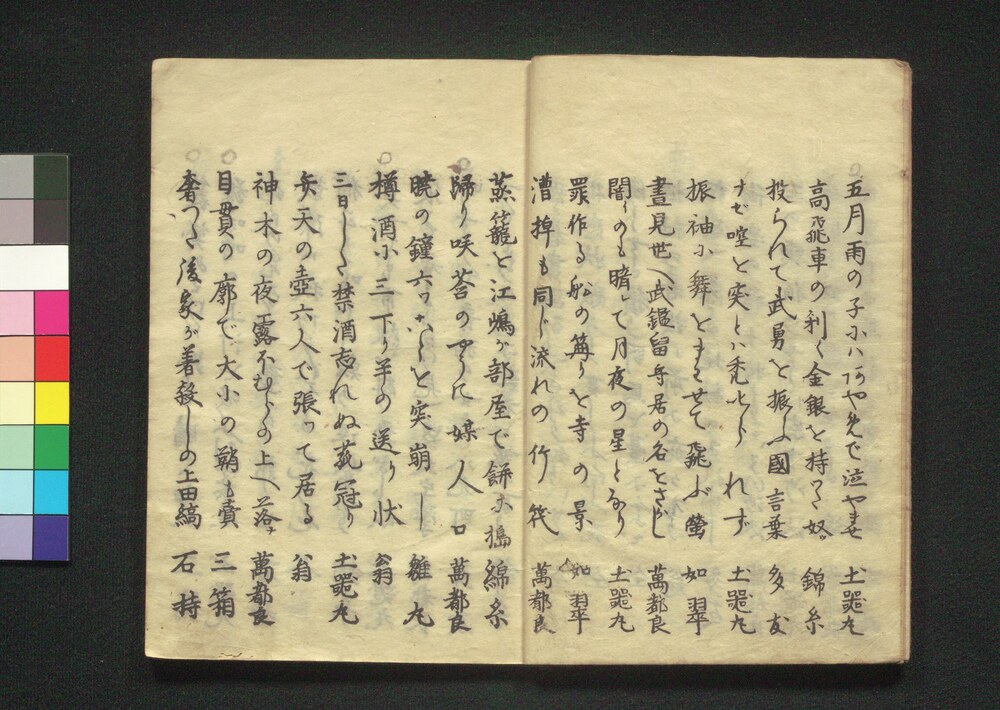 五月雨の子ハ で泣やませ 土器丸
高飛車の利く金銀を持つく奴 錦糸
投られて武勇を振ふ國言葉 多友
ナゼ啌と突とハ禿 れず 土器丸
振袖に舞をまさせて飛ぶ螢 如翠
晝見世ヘ武鑑留守居の名をさがし 萬都良
闇のも晴して月夜の星となり 土器丸
罪作る船の篝りを寺の景 如翠
漕掉も同じ流れの竹筏 萬都良
蒸籠と江嶋が部屋で餅に搗 綿糸
歸り咲 莟のやうに媒人口 萬都良
暁の鐘六ツ を突崩し 雛丸
樽酒に三下り半の送り状 翁
三日しく禁酒忘れぬ 冠り 土器丸
弁天の壺六人で張つて居る 翁
神木の夜露 の上へ落 萬都良
目貫の廓で大小の鞘も賣 三箱
奢つく後家が着殺しの上田縞 石持